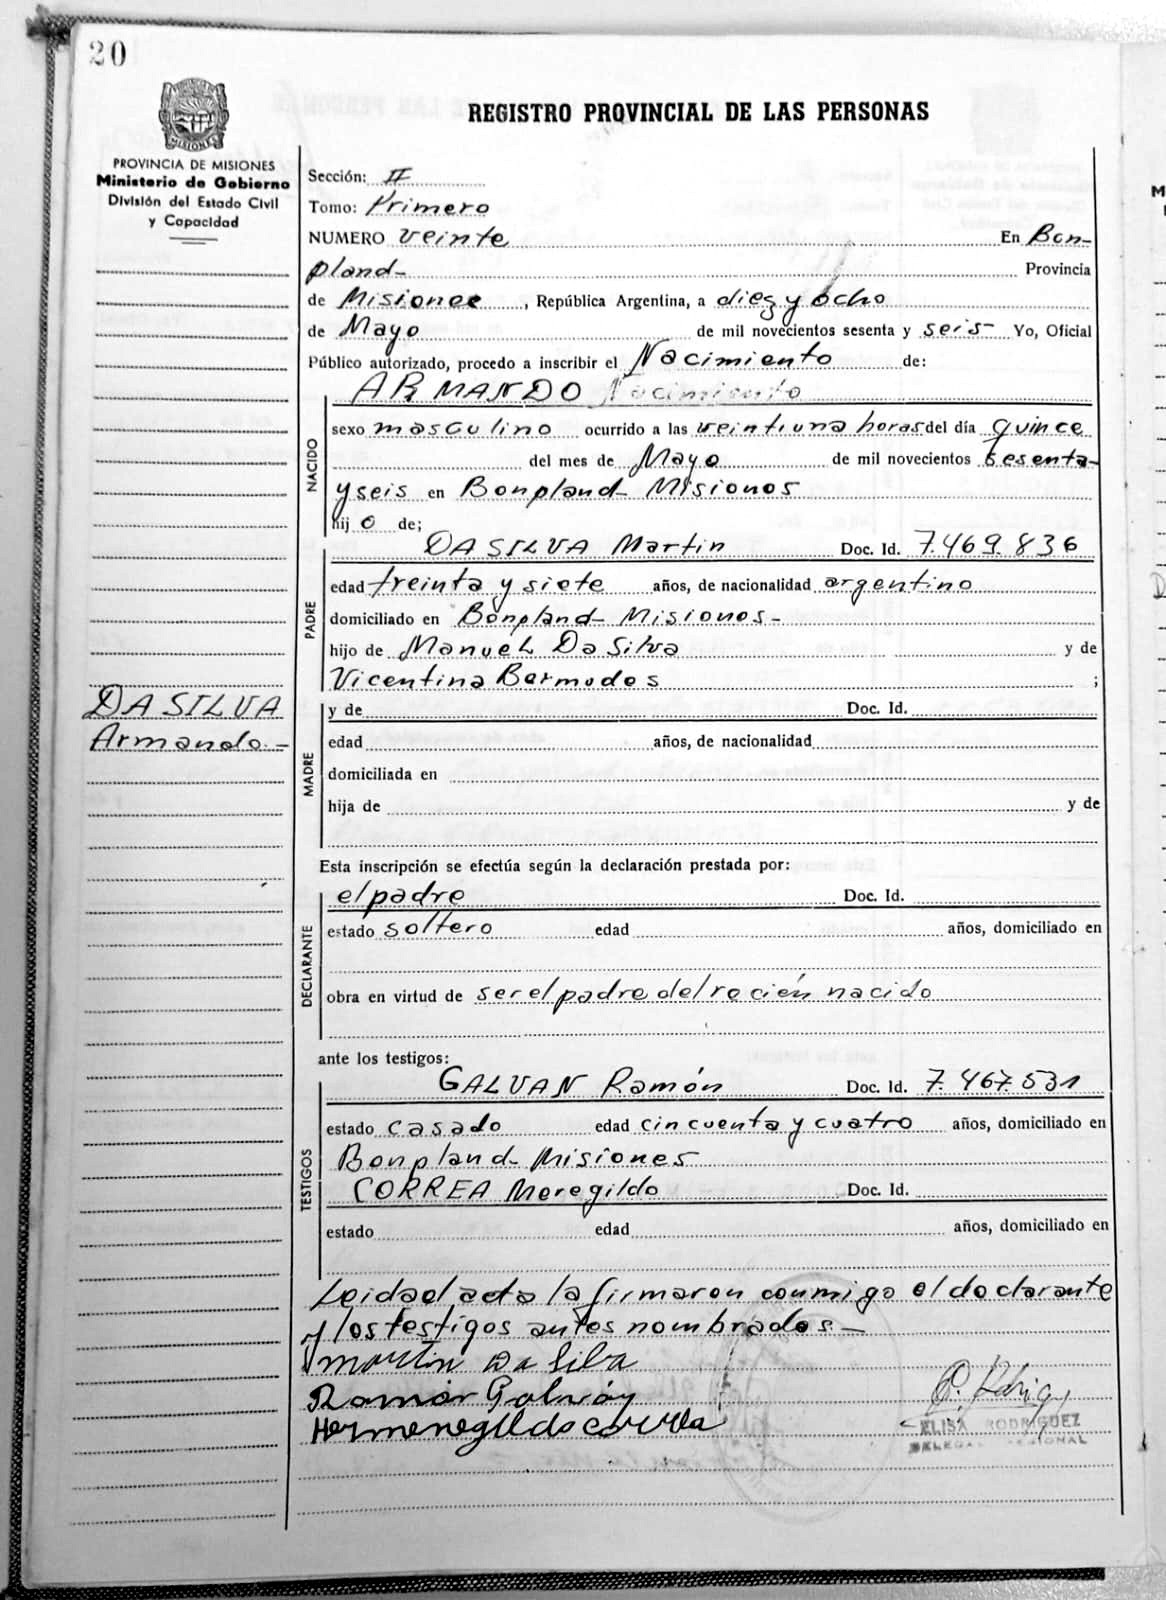 20
REGISTRO PROVINCIAL DE LAS PERSONAS
MISIONES
PROVINCIA DE MISIONES
Ministerio de Gobierno
División del Estado Civil
y Capacidad
Sección: II
Tomo: Primero
NUMERO veinte En Bon-
pland- Provincia
de Misiones, República Argentina, a diez y ocho
de Mayo de mil novecientos sesenta y seis- Yo, Oficial
Público autorizado, procedo a inscribir el Nacimiento de:
ARMANDO Nacimiento
NACIDO
sexo masculino ocurrido a las veintiuna horas del día quince
del mes de Mayo de mil novecientos sesenta-
y seis en Bonpland- Misiones
hij o de;
PADRE
DA SILVA Martin Doc. Id. 7.469.836
edad treinta y siete años, de nacionalidad argentino
domiciliado en Bonpland- Misiones-
hijo de Manuel Da Silva y de
Vicentina Bermudes ;
DA SILVA
Armando.-
MADRE
y de Doc. Id.
edad años, de nacionalidad
domiciliada en
hija de y de
Esta inscripción se efectúa según la declaración prestada por:
DECLARANTE
el padre Doc. Id.
estado soltero edad años, domiciliado en
obra en virtud de ser el padre del recién nacido
ante los testigos:
TESTIGOS
GALVAN Ramón Doc. Id. 7.467.531
estado casado edad cincuenta y cuatro años, domiciliado en
Bonpland- Misiones
CORREA Meregildo Doc. Id.
estado edad años, domiciliado en
Leida el acta la firmaron conmigo el declarante
y los testigos antes nombrados-
martin Da Silva
Ramón Galván
Hermenegildo Correa
ELISA RODRIGUEZ